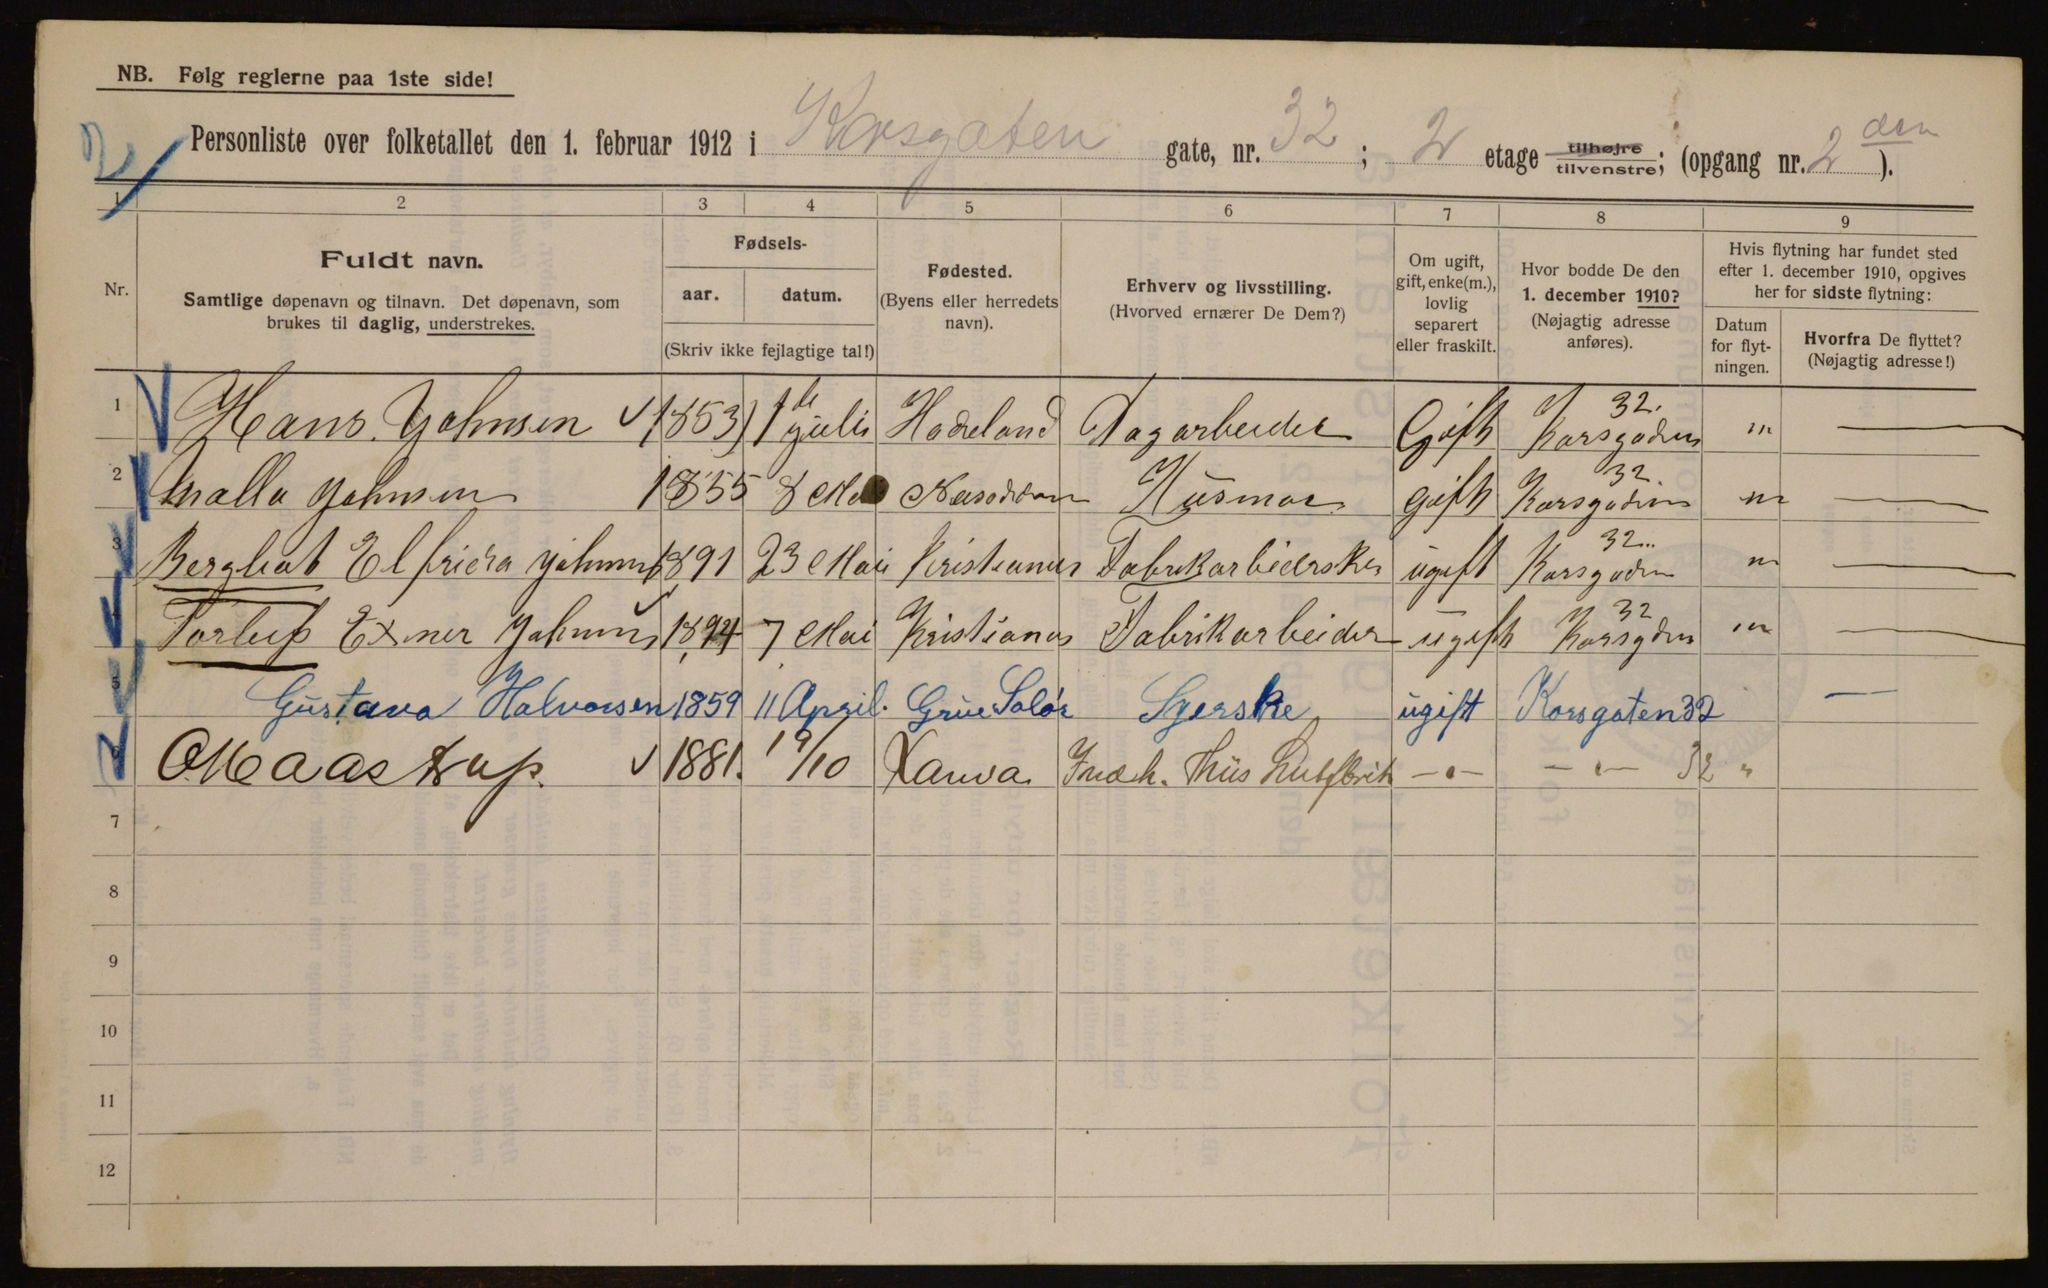 NB. Følg reglerne paa 1ste side!
2
Personliste over folketallet den 1. februar 1912 i Korsgaten gate, nr. 32 ; 2 etage tilhøjre tilvenstre; (opgang nr. 2 den ).
1 2 3 4 5 6 7 8 9
Nr.
Fuldt navn.
Samtlige døpenavn og tilnavn. Det døpenavn, som
brukes til daglig, understrekes.
Fødsels-
aar. datum.
(Skriv ikke fejlagtige tal!)
Fødested.
(Byens eller herredets
navn).
Erhverv og livsstilling.
(Hvorved ernærer De Dem?)
Om ugift,
gift, enke(m.),
lovlig
separert
eller fraskilt.
Hvor bodde De den
1. december 1910?
(Nøjagtig adresse
anføres).
Hvis flytning har fundet sted
efter 1. december 1910, opgives
her for sidste flytning:
Datum
for flyt-
ningen.
Hvorfra De flyttet?
(Nøjagtig adresse!)
1 Hans Johnsen 1853 1 de Juli Hadeland Dagarbeider Gift Korsgaden 32. "
2 Johnsen 1855 8 Mai Nesodden Husmor Gift Korsgaden 32 "
3 Elfrieda Johnsen 1891 23 Mai Kristiania Fabrikarbeiderske ugift Korsgaden 32 "
Exner Johnsen 1894 7 Mai Kristiania Fabrikarbeider ugift Korsgden 32 "
5 Gustava Halvorsen 1859 11 April. Grue Solør Syerske ugift Korsgaten 32 —
O Maastrup. 1881. 19/10 — " — — " — 32 "
7
8
9
10
11
12